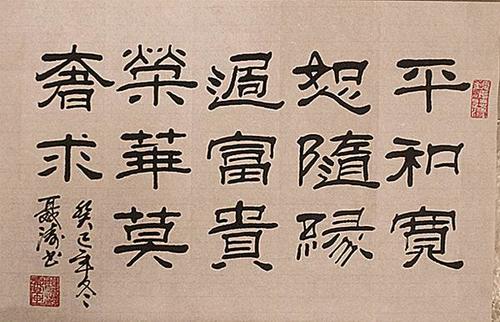 平和寬
恕隨緣
過富貴
榮華莫
奢求
癸巳年冬
聶濤书